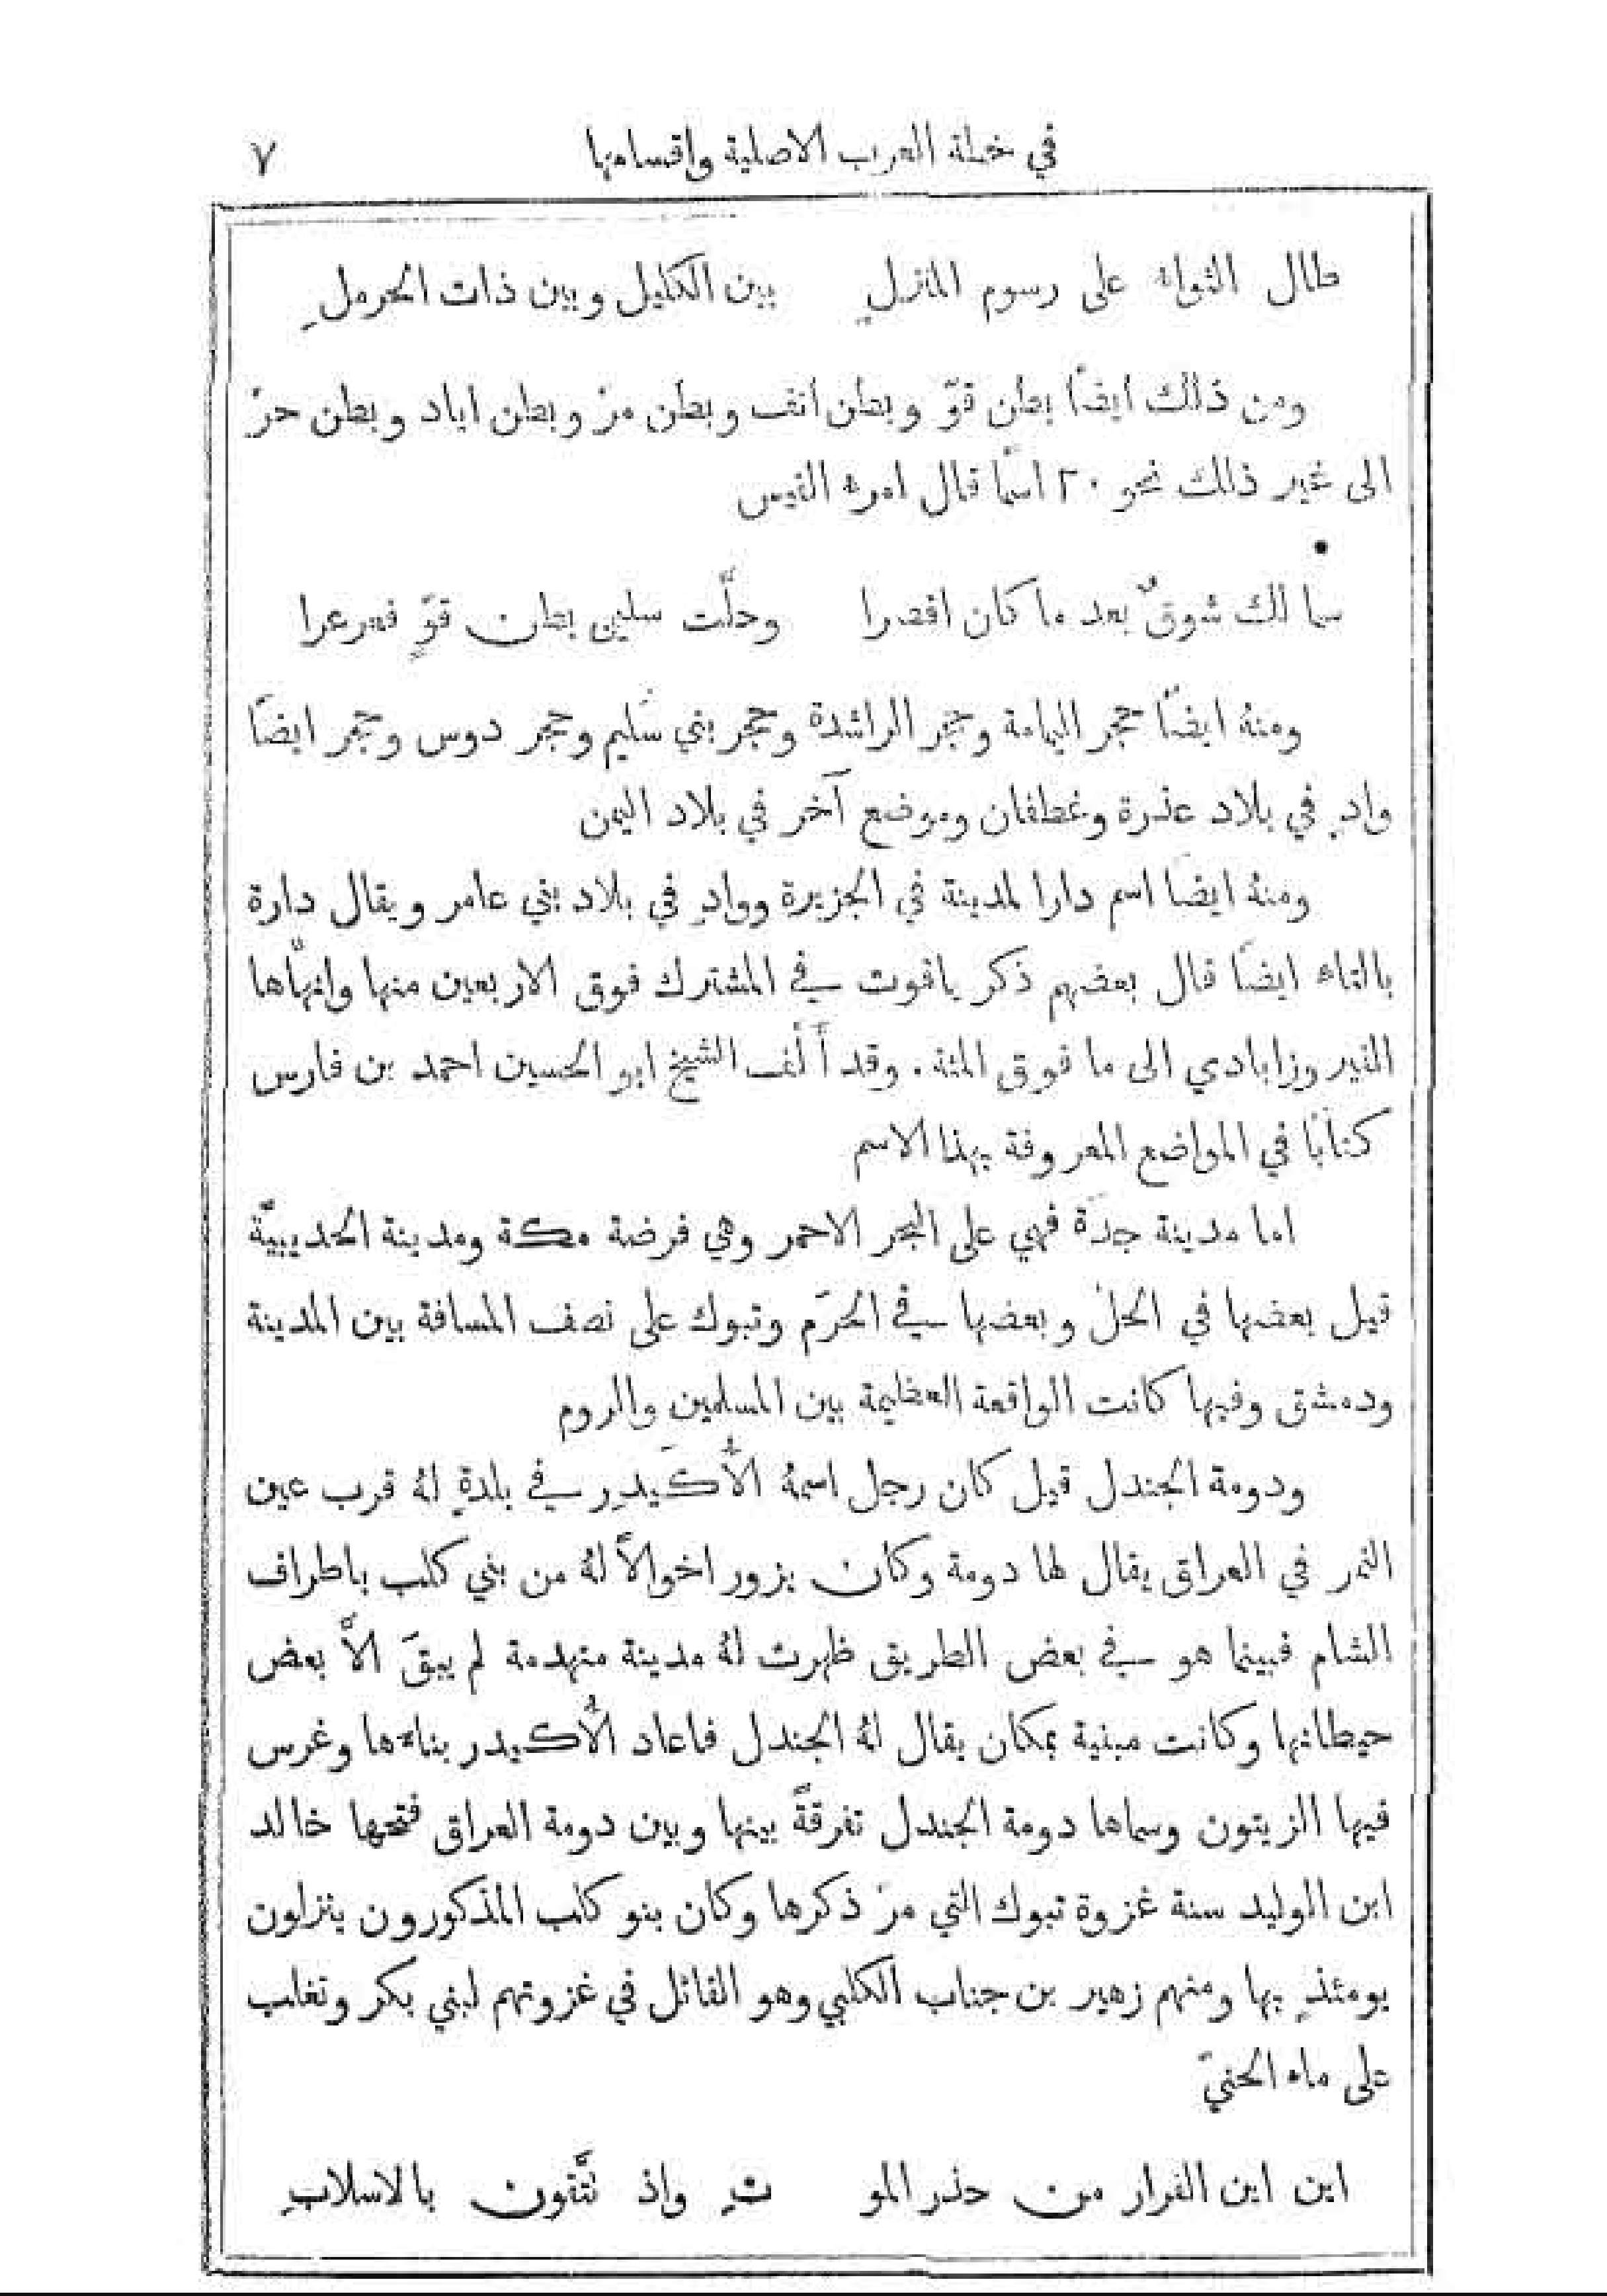 في خطة العرب الاصلية واقسامها ٧
طال الثواء على رسوم المنزلِ بين الكليل وبين ذات الحرملِ
ومن ذلك ايضًا بطن قوّ وبطن انف وبطن مرّ وبطن اياد وبطن حرّ
الى غير ذلك نحو ٢٠ اسمًا قال امرء القيس
سما لك شوقٌ بعد ما كان اقصرا وحلَّت سليمى بطن قوٍّ فعرعرا
ومنهُ ايضًا حجر اليمامة وحجر الراشدة وحجر بني سُليم وحجر دوس وحجر ايضًا
وادٍ في بلاد عذرة وغطفان وموضع آخر في بلاد اليمن
ومنهُ ايضًا اسم دارا لمدينة في الجزيرة ووادٍ في بلاد بني عامر ويقال دارة
بالتاء ايضًا قال بعضهم ذكر ياقوت في المشترك فوق الاربعين منها وانهاها
الفيروزابادي الى ما فوق المئة . وقد أَلَّف الشيخ ابو الحسين احمد بن فارس
كتابًا في المواضع المعروفة بهذا الاسم
اما مدينة جدَّة فهي على البحر الاحمر وهي فرضة مكة ومدينة الحديبيَّة
قيل بعضها في الحلّ وبعضها في الحَرَم وتبوك على نصف المسافة بين المدينة
ودمشق وفيها كانت الواقعة العظيمة بين المسلمين والروم
ودومة الجندل قيل كان رجل اسمهُ الأُكَيدِر في بلدةٍ لهُ قرب عين
التمر في العراق يقال لها دومة وكان يزور اخوالاً لهُ من بني كلب باطراف
الشام فبينما هو في بعض الطريق ظهرت لهُ مدينة منهدمة لم يبقَ الاَّ بعض
حيطانها وكانت مبنية بمكان يقال لهُ الجندل فاعاد الأُكيدر بناءها وغرس
فيها الزيتون وسماها دومة الجندل تفرقةً بينها وبين دومة العراق فتحها خالد
ابن الوليد سنة غزوة تبوك التي مرّ ذكرها وكان بنو كلب المذكورون ينزلون
يومئذٍ بها ومنهم زهير بن جناب الكلبي وهو القائل في غزوتهم لبني بكر وتغلب
على ماء الحنيّ
اين اين الفرار من حذر المو تِ واذ تتَّقون بالاسلابِ